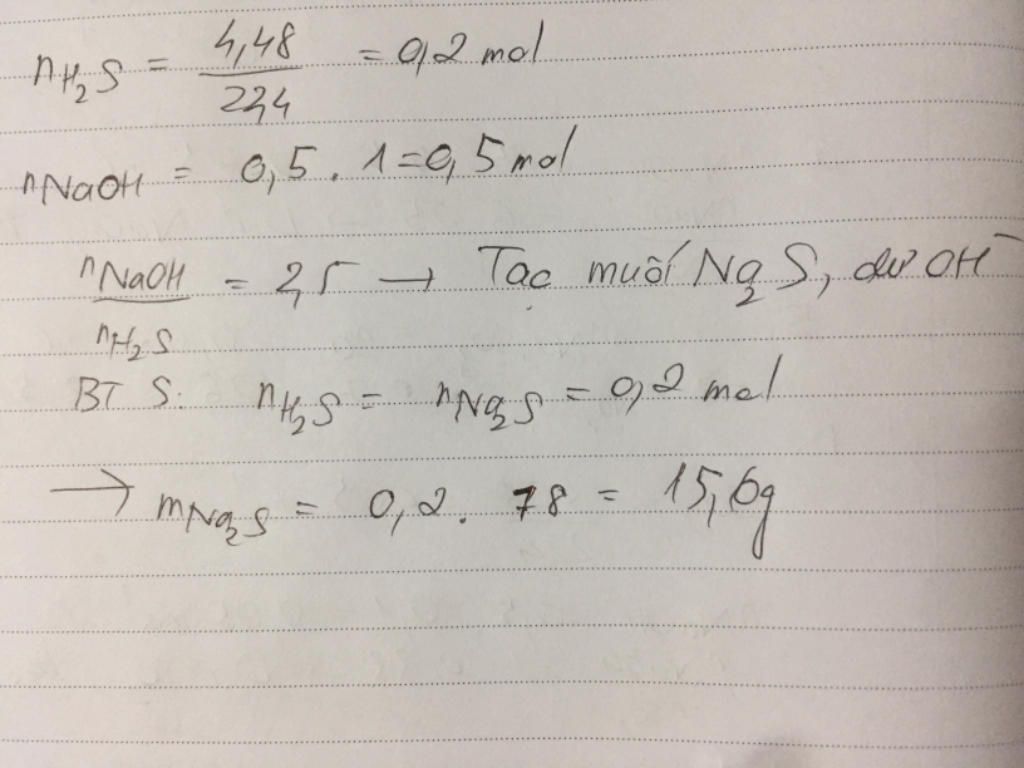 nH₂S = 4,48 / 22,4 = 0,2 mol
nNaOH = 0,5 . 1 = 0,5 mol
nNaOH / nH₂S = 2,5 → Tạo muối Na₂S, dư OH⁻
BT S: nH₂S = nNa₂S = 0,2 mol
→ mNa₂S = 0,2 . 78 = 15,6g